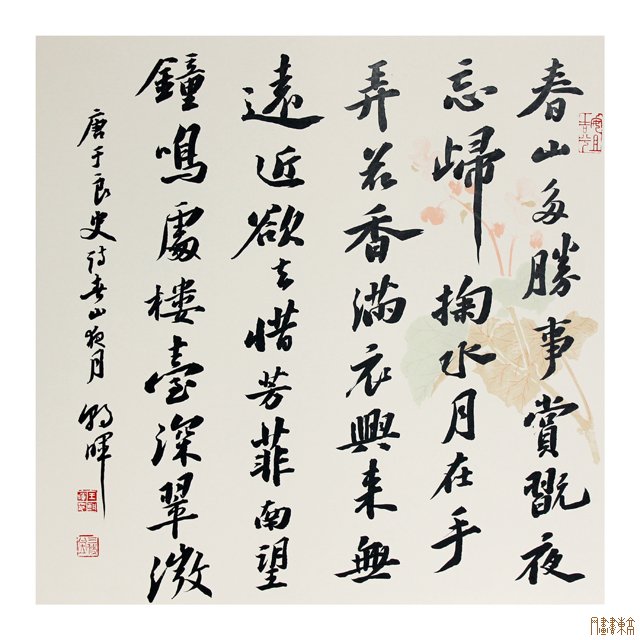 春山多勝事賞翫夜
忘歸掬水月在手
弄花香滿衣興來無
遠近欲去惜芳菲南望
鐘鳴處樓臺深翠微
唐于良史詩春山夜月 暉